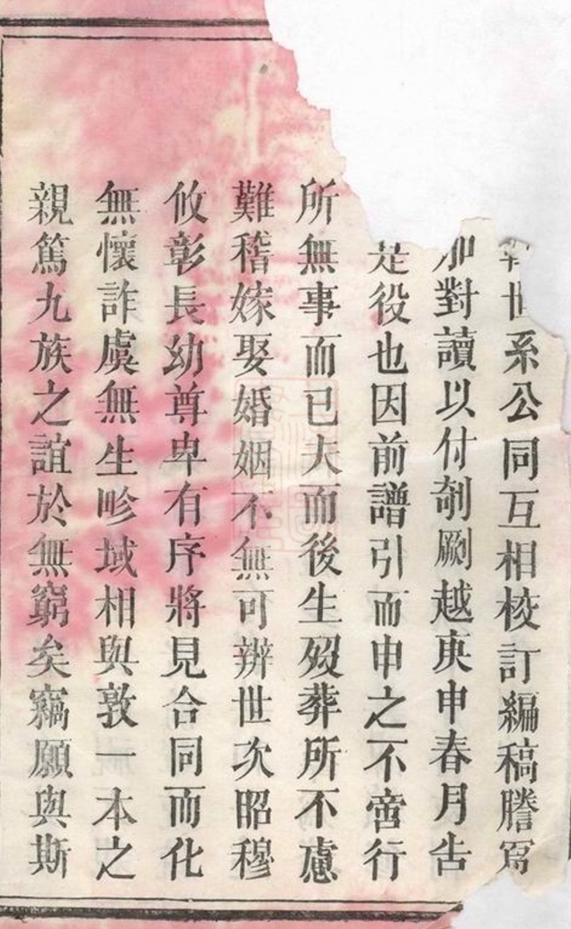 世系公同互相校訂編稿謄寫
對讀以付剞劂越庚申春月告
是役也因前譜引而申之不啻行
所無事而已大而後生歿葬所不慮
難稽嫁娶婚姻不無可辦世次昭穆
攸彰長幼尊卑有序將見合同而化
無懷詐虞無生畛域相與敦一本之
親篤九族之誼於無窮矣竊願與斯